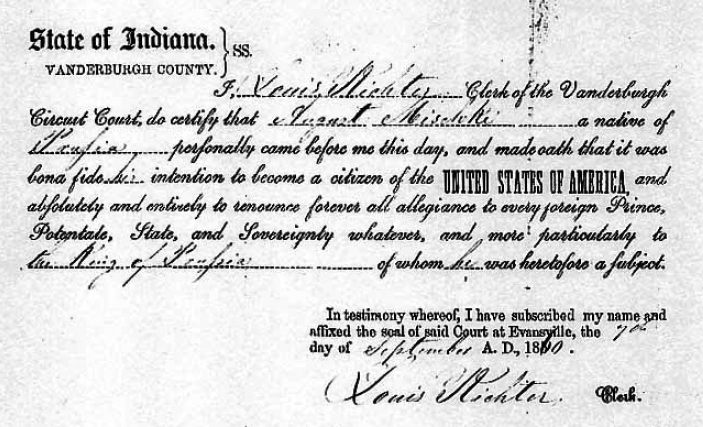 State of Indiana. } SS.
VANDERBURGH COUNTY.
I, Louis Richter Clerk of the Vanderburgh
Circuit Court, do certify that August a native of
Prussia personally came before me this day, and made oath that it was
bona fide his intention to become a citizen of the UNITED STATES OF AMERICA, and
absolutely and entirely to renounce forever all allegiance to every foreign Prince,
Potentate, State, and Sovereignty whatever, and more particularly to
the King of Prussia of whom he was heretofore a subject.
In testimony whereof, I have subscribed my name and
affixed the seal of said Court at Evansville, the 7th
day of September A. D., 18
Louis Richter. Clerk.